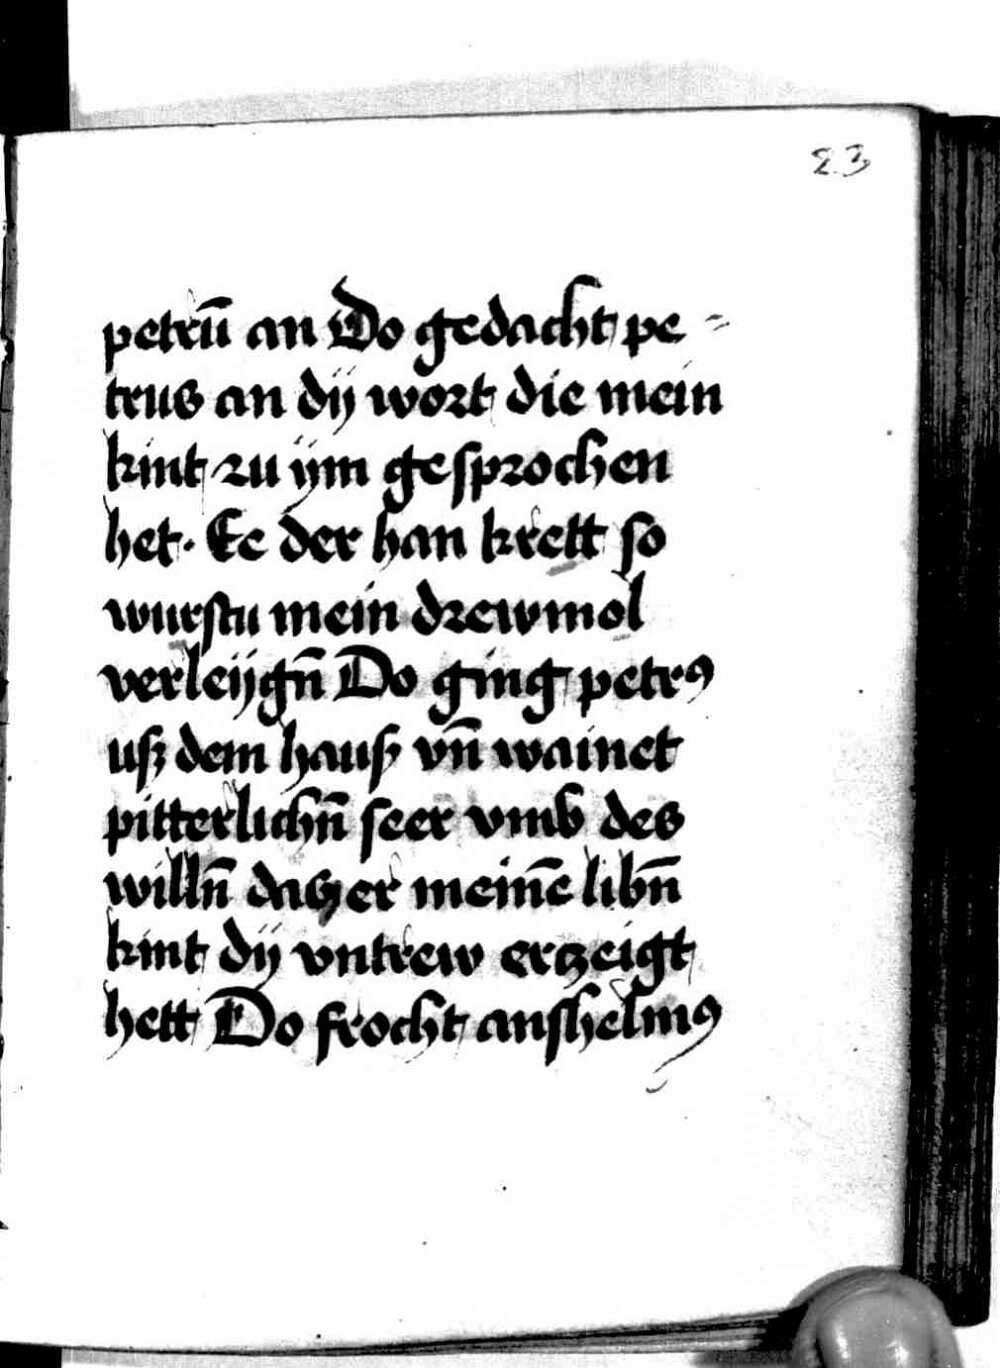 23
petrū an Do gedacht pe=
trus an dÿ wort die mein
kint zu ÿm gesprochen
het. Ee der han krett so
wurstu mein drewmol
verleÿgn̄ Do ging petrꝰ
uß dem hauß vn̄ wainet
pitterlichn̄ seer vmb des
willn̄ das er meinē libn̄
kint dÿ vntrew erzeigt
hett Do frocht anshelmꝰ